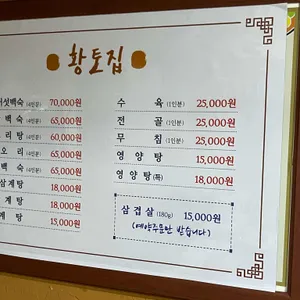 황토집
섯백숙 (4인분) 70,000원
백숙 (4인분) 65,000원
리탕 (4인분) 60,000원
오리 (4인분) 65,000원
백숙 (4인분) 65,000원
삼계탕 18,000원
계탕 18,000원
계탕 15,000원
수육 (1인분) 25,000원
전골 (1인분) 25,000원
무침 (1인분) 25,000원
영양탕 15,000원
영양탕(특) 18,000원
삼겹살 (180g) 15,000원
(예약주문만 받습니다)